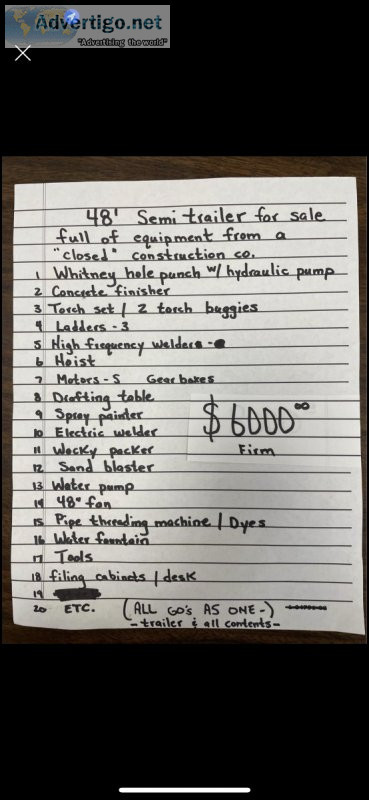 Advertigo.net
"Advertising the world"
48' Semi trailer for sale
full of equipment from a
"closed" construction co.
1 Whitney hole punch w/ hydraulic pump
2 Concrete finisher
3 Torch set / 2 torch buggies
4 Ladders - 3
5 High frequency welder
6 Hoist
7 Motors - 5 Gear boxes
8 Drafting table
9 Spray painter
10 Electric welder
11 Wacky packer
12 Sand blaster
13 Water pump
14 48" fan
15 Pipe threading machine / Dyes
16 Water fountain
17 Tools
18 filing cabinets / desk
19
20 ETC. (ALL GO'S AS ONE -)
- trailer & all contents -
$6000 00
Firm